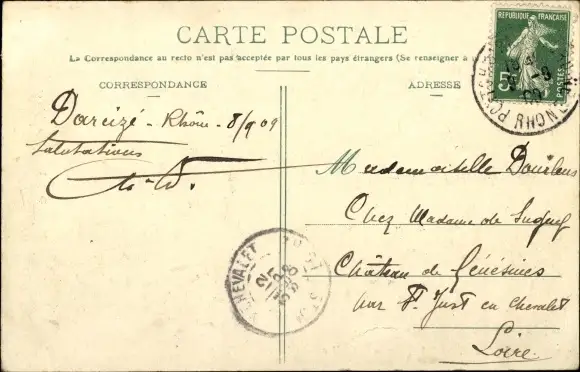 CARTE POSTALE
La Correspondance au recto n'est pas acceptée par tous les pays étrangers (Se renseigner à
CORRESPONDANCE
ADRESSE
RÉPUBLIQUE FRANÇAISE
Dareizé - Rhône - 8/9 09
Salutations
Mademoiselle
Chez Madame de
Château de Génésines
par St Just en Chevalet
Loire
CHEVALET